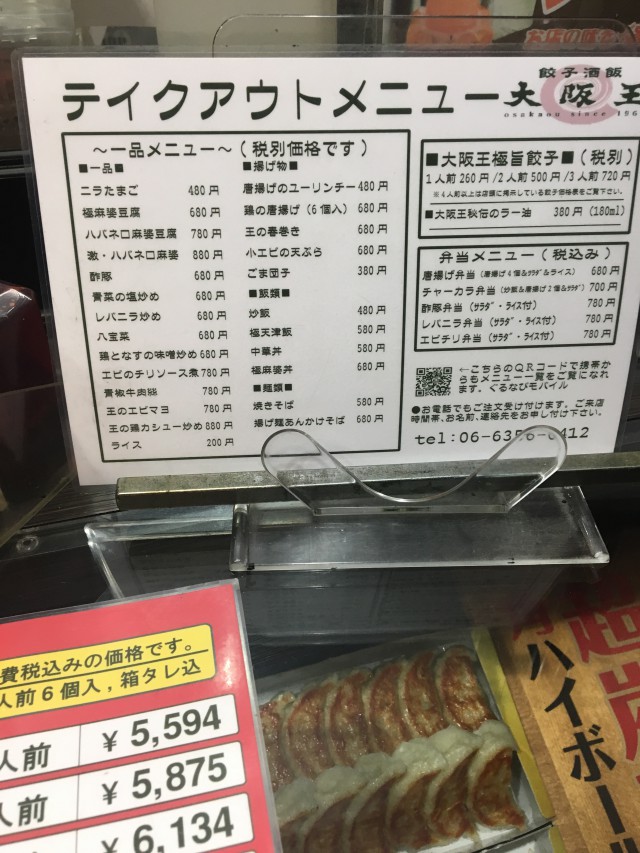 お店の味を
テイクアウトメニュー
餃子酒飯
大阪王
osakaou since 196
〜一品メニュー〜(税別価格です)
■一品■
ニラたまご 480円
極麻婆豆腐 680円
ハバネロ麻婆豆腐 780円
激・ハバネロ麻婆 880円
酢豚 680円
青菜の塩炒め 680円
レバニラ炒め 680円
八宝菜 680円
鶏となすの味噌炒め 680円
エビのチリソース煮 780円
青椒牛肉絲 780円
王のエビマヨ 780円
王の鶏カシュー炒め 880円
ライス 200円
■揚げ物■
唐揚げのユーリンチー 480円
鶏の唐揚げ(6個入) 680円
王の春巻き 680円
小エビの天ぷら 680円
ごま団子 380円
■飯類■
炒飯 480円
極天津飯 580円
中華丼 580円
極麻婆丼 680円
■麺類■
焼きそば 580円
揚げ麺あんかけそば 680円
■大阪王極旨餃子■(税別)
1人前260円/2人前500円/3人前720円
※4人前以上は店頭に掲示している餃子価格表をご覧下さい。
■大阪王秘伝のラー油 380円(180ml)
弁当メニュー(税込み)
唐揚げ弁当(唐揚げ4個&サラダ&ライス) 680円
チャーカラ弁当(炒飯&唐揚げ2個&サラダ) 700円
酢豚弁当(サラダ・ライス付) 780円
レバニラ弁当(サラダ・ライス付) 780円
エビチリ弁当(サラダ・ライス付) 780円
←こちらのQRコードで携帯か
らもメニュー一覧をご覧になれ
ます。ぐるなびモバイル
●お電話でもご注文受け付けます。ご来店
時間帯、お名前、連絡先をお申し付け下さい。
tel:06-6356-0412
費税込みの価格です。
人前6個入,箱タレ込
人前 ¥5,594
人前 ¥5,875
¥6,134
超炭
ハイボー